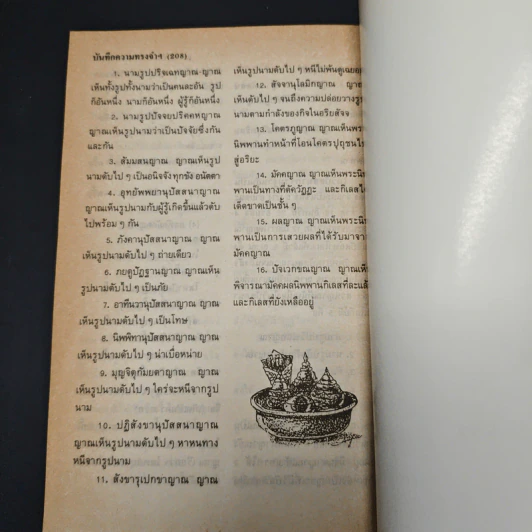 บันทึกความทรงจำฯ (208)
1. นามรูปปริจเฉทญาณ ญาณ
เห็นทั้งรูปทั้งนามว่าเป็นคนละอัน รูป
ก็อันหนึ่ง นามก็อันหนึ่ง ผู้รู้ก็อันหนึ่ง
2. นามรูปปัจจยปริคคหญาณ
ญาณเห็นรูปนามว่าเป็นปัจจัยซึ่งกัน
และกัน
3. สัมมสนญาณ ญาณเห็นรูป
นามดับไป ๆ เป็นอนิจจัง ทุกขัง อนัตตา
4. อุทยัพพยานุปัสสนาญาณ
ญาณเห็นรูปนามกับผู้รู้เกิดขึ้นแล้วดับ
ไปพร้อม ๆ กัน
5. ภังคานุปัสสนาญาณ ญาณ
เห็นรูปนามดับไป ๆ ถ่ายเดียว
6. ภยตูปัฏฐานญาณ ญาณเห็น
รูปนามดับไป ๆ เป็นภัย
7. อาทีนวานุปัสสนาญาณ ญาณ
เห็นรูปนามดับไป ๆ เป็นโทษ
8. นิพพิทานุปัสสนาญาณ ญาณ
เห็นรูปนามดับไป ๆ น่าเบื่อหน่าย
9. มุญจิตุกัมยตาญาณ ญาณ
เห็นรูปนามดับไป ๆ ใคร่จะหนีจากรูป
นาม
10. ปฏิสังขานุปัสสนาญาณ
ญาณเห็นรูปนามดับไป ๆ หาหนทาง
หนีจากรูปนาม
11. สังขารุเปกขาญาณ ญาณ
เห็นรูปนามดับไป ๆ หนีไม่พ้นดูเฉยอยู่
12. สัจจานุโลมิกญาณ ญาณ
เห็นดับไป ๆ จนถึงความปล่อยวางรูป
นามตามกำลังของกิจในอริยสัจจ
13. โคตรภูญาณ ญาณเห็นพระ
นิพพานทำหน้าที่โอนโคตรปุถุชน
สู่อริยะ
14. มัคคญาณ ญาณเห็นพระนิพ
พานเป็นทางที่ตัดวัฏฏะ และกิเลส
เด็ดขาดเป็นชั้น ๆ
15. ผลญาณ ญาณเห็นพระนิพ
พานเป็นการเสวยผลที่ได้รับมาจาก
มัคคญาณ
16. ปัจเวกขณญาณ ญาณเห็น
พิจารณามัคคผลนิพพานกิเลสที่ละแล้ว
และกิเลสที่ยังเหลืออยู่